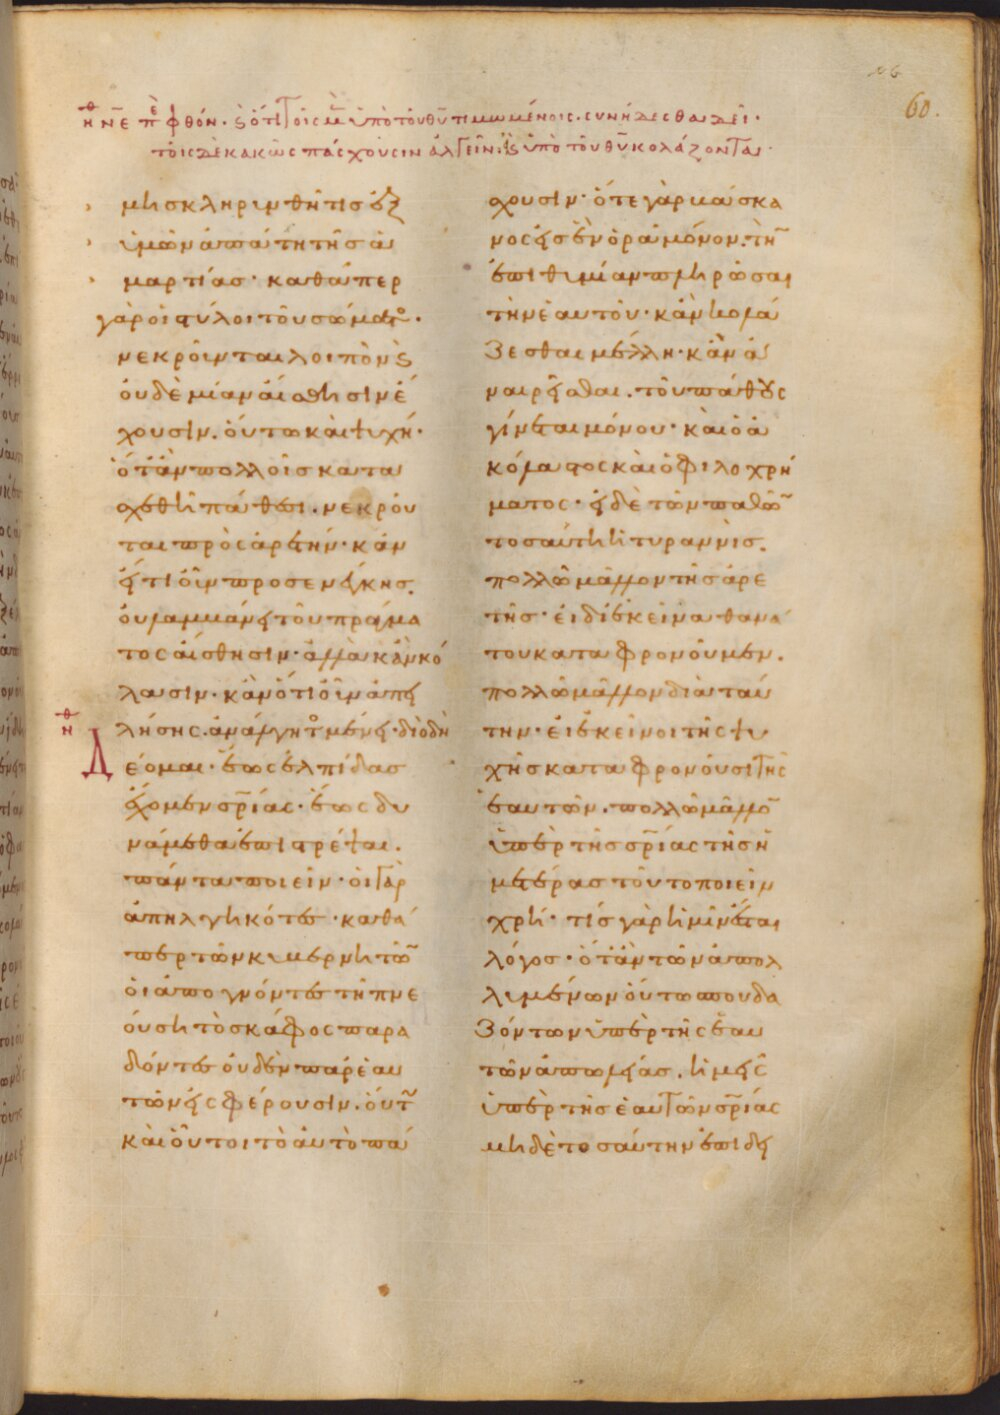 60.
ἠθ νε πε φθόν. ϛ ὅτι τοῖς μὲν ὑπὸ τοῦ θυ τιμωμένοις. συνήδεσθαι δεῖ.
τοῖς δὲ κακῶς πάσχουσιν ἀλγεῖν. ἢ ὑπὸ τοῦ θυ κολάζονται.
μὴ σκληρυνθῆ τὶς ἐξ
ὑμῶν ἀπάτη τῆς ἁ
μαρτίας· καθάπερ
γὰρ οἱ τύλοι τοῦ σώματος.
νεκροῦνται λοιπὸν ϛ
οὐδὲ μίαν αἴσθησιν ἔ
χουσιν. οὕτω καὶ ψυχή.
ὅταν πολλοῖς κατα
σχεθῆ πάθεσι. νεκροῦ
ται πρὸς ἀρετήν· κἂν
ὅτι οῦν προσενέγκης.
οὐ λαμβάνει τοῦ πράγμα
τος αἴσθησιν· ἀλλὰ κἂν κό
λασιν. κἂν ὁτιοῦν ἀπει
λήσης. ἀνάλγητος μένει· διὸ δὴ
Δέομαι· ἕως ἐλπίδας
ἔχομεν σρίας. ἕως δυ
νάμεθα ἐπιστρέψαι.
πάντα ποιεῖν· οἱ γὰρ
ἀπηλγηκότες· καθά
περ τῶν κυβερνητῶν
οἱ ἀπογνόντες τῆ πνε
ούση τὸ σκάφος παρα
δόντες οὐδὲν παρ ἑαυ
τῶν εἰσφέρουσιν. οὕτω
καὶ οὗτοι τὸ αὐτὸ πά
χουσιν· ὅτε γὰρ βάσκα
νος εἰς ἓν ὁρᾶ μόνον. τὴν
ἐπιθυμίαν πληρῶσαι
τὴν ἑαυτοῦ· κἂν κολά
ζεσθαι μέλλη· κἂν ἀ
ναιρεῖσθαι. τοῦ πάθους
γίνεται μόνου· καὶ ὁ ἀ
κόλαστος καὶ ὁ φιλοχρή
ματος· εἰ δὲ τῶν παθῶν
τοσαύτη ἡ τυραννὶς.
πολλῶ μᾶλλον τῆς ἀρε
τῆς· εἰ δι ἐκεῖνα θανά
του καταφρονοῦμεν.
πολλῶ μᾶλλον διὰ ταύ
την· εἰ ἐκεῖνοι τῆς ψυ
χῆς καταφρονοῦσι τῆς
ἑαυτῶν. πολλῶ μᾶλλον
ὑπὲρ τῆς σρίας τῆς ἡ
μετέρας τοῦτο ποιεῖν
χρή· τίς γὰρ ἡμῖν ἔσται
λόγος· ὅταν τῶν ἀπολ
λυμένων οὕτω σπουδα
ζόντων ὑπὲρ τῆς ἑαυ
τῶν ἀπωλείας. ἡμεῖς
ὑπὲρ τῆς ἑαυτῶν σρίας
μὴ δὲ τοσαύτην ἐπιδει